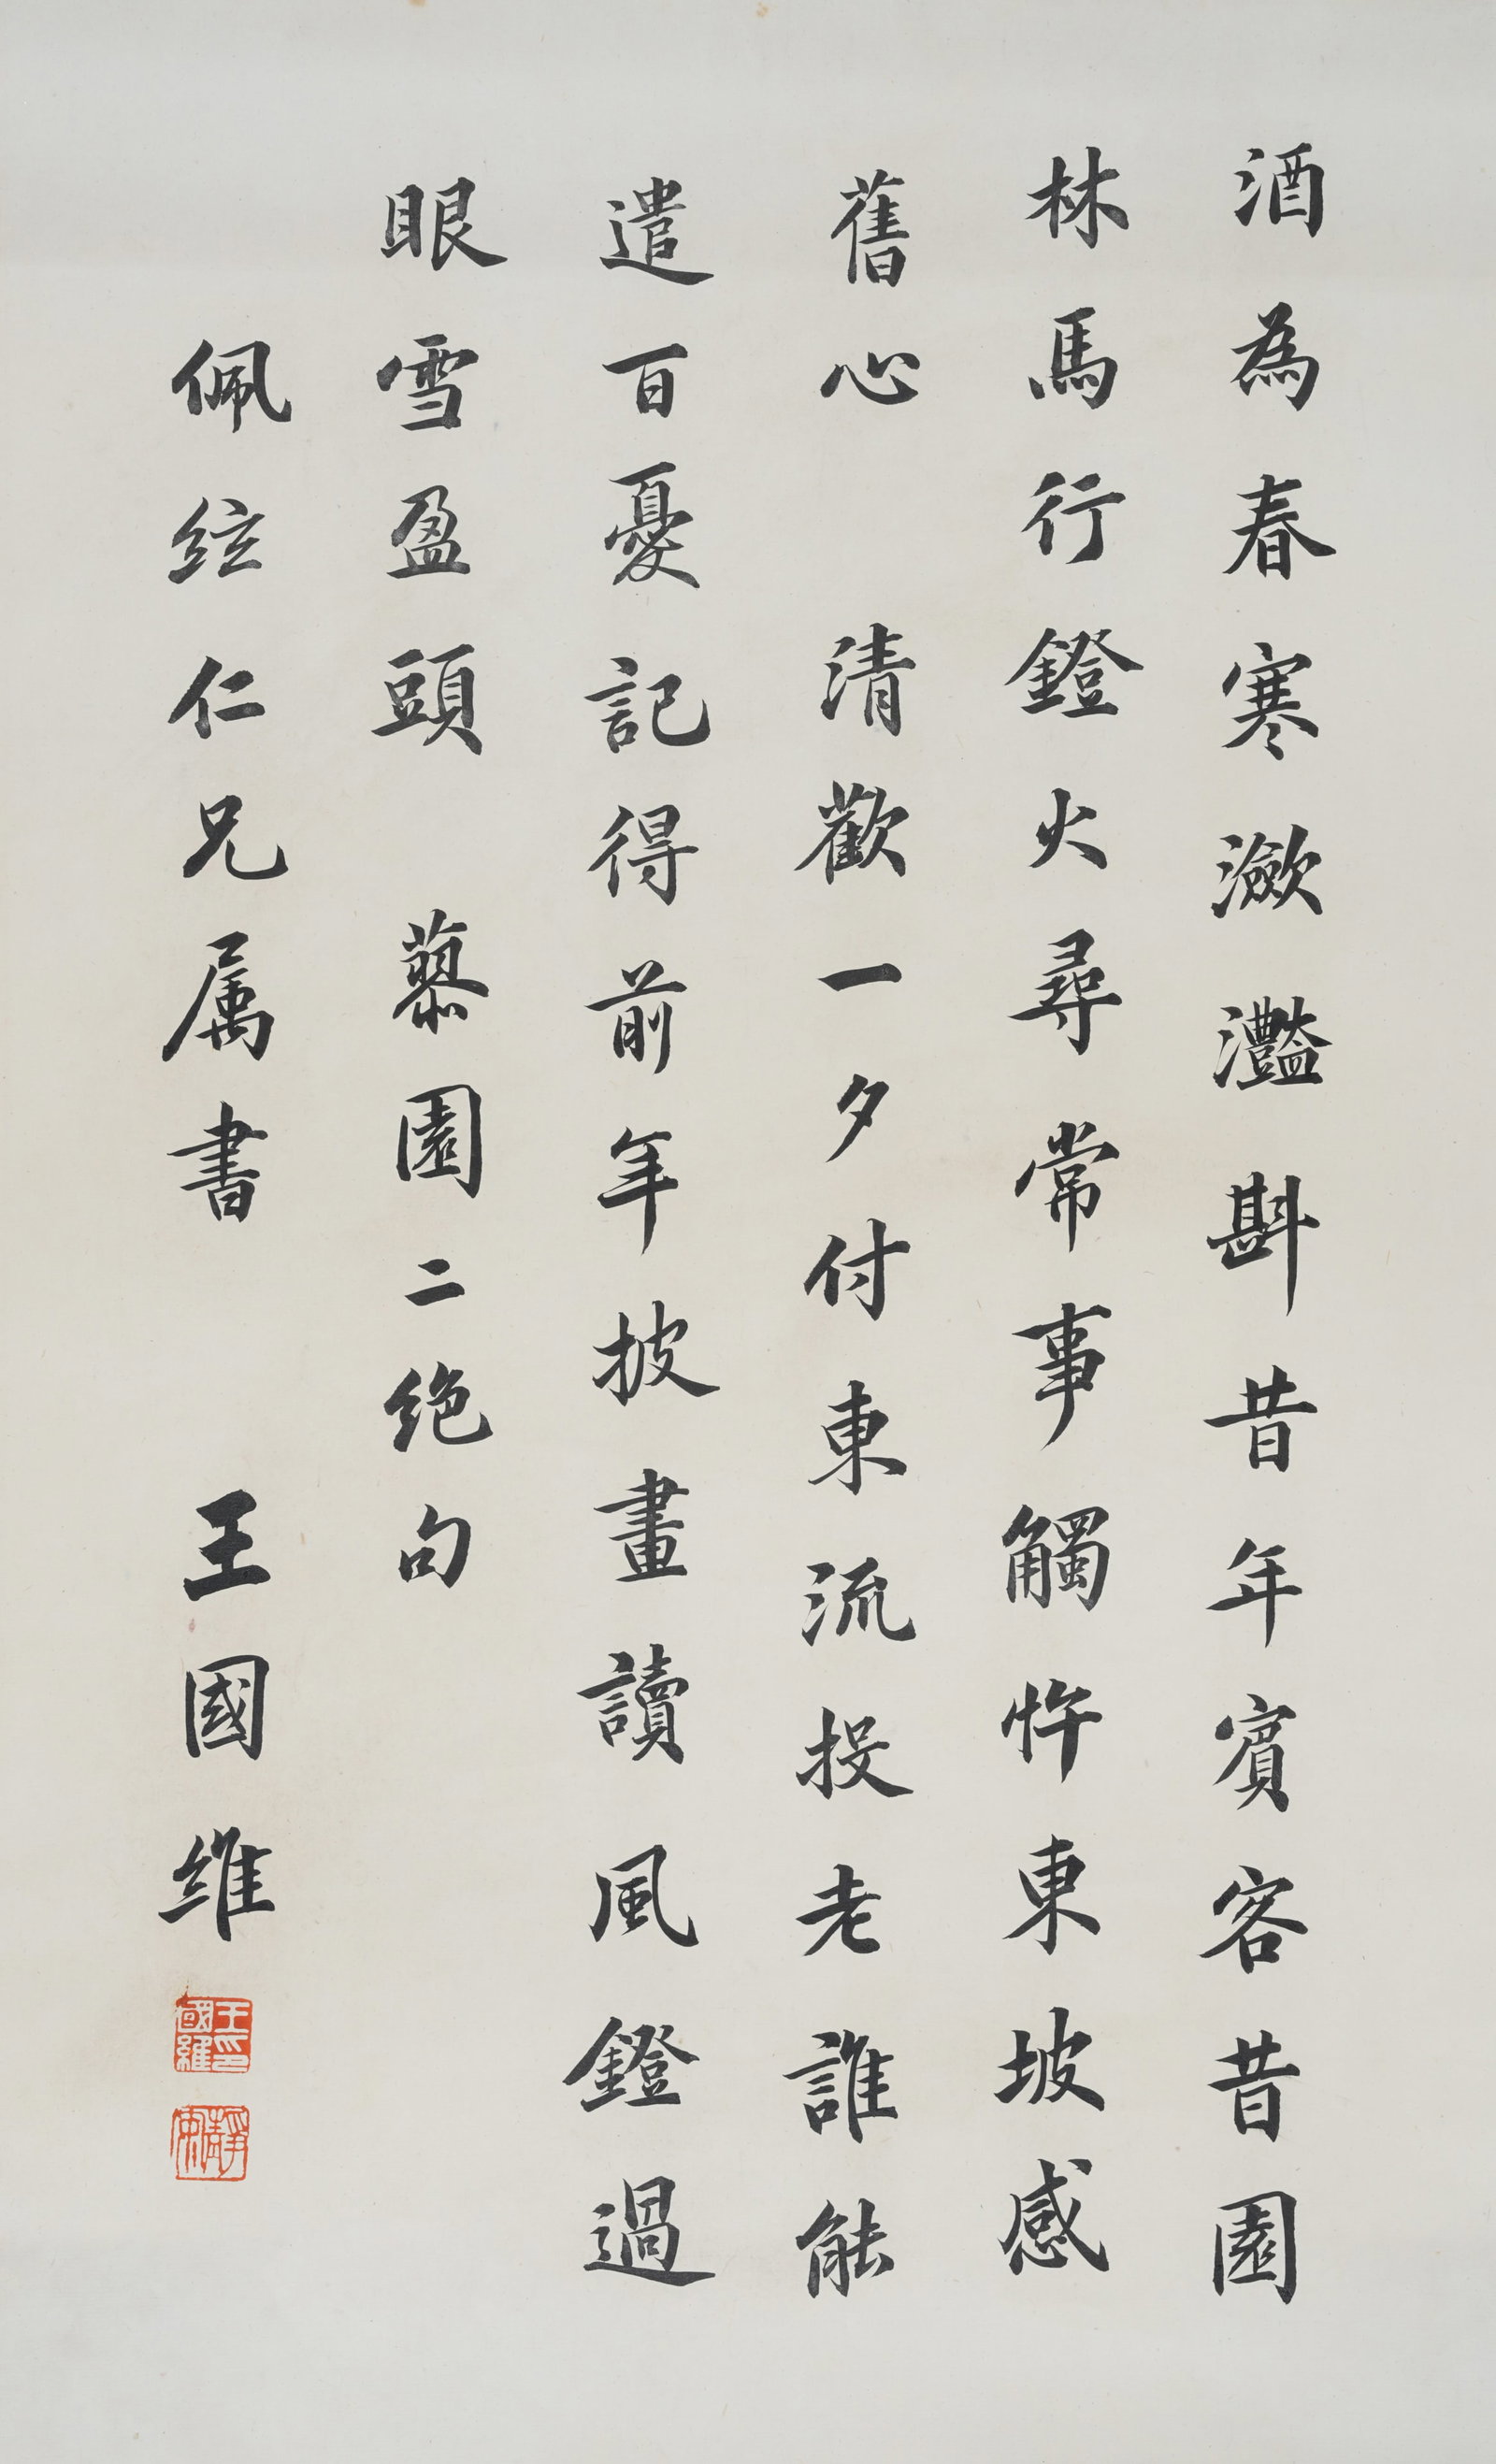 酒為春寒瀲灩斟昔年賓客昔園
林馬行鐙火尋常事觸忤東坡感
舊心 清歡一夕付東流投老誰能
遣百憂記得前年披畫讀風鐙過
眼雪盈頭 園二絕句
佩紘仁兄属書 王國維
王國維印
靜安